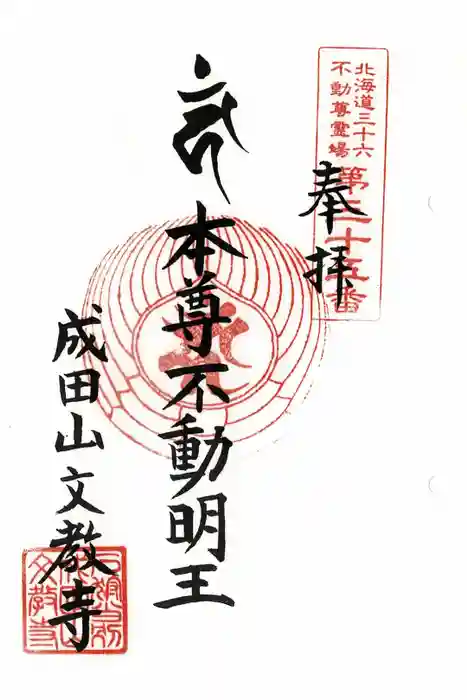 北海道三十六
不動尊霊場
第二十五番
奉拝
本尊不動明王
成田山文教寺
文教寺